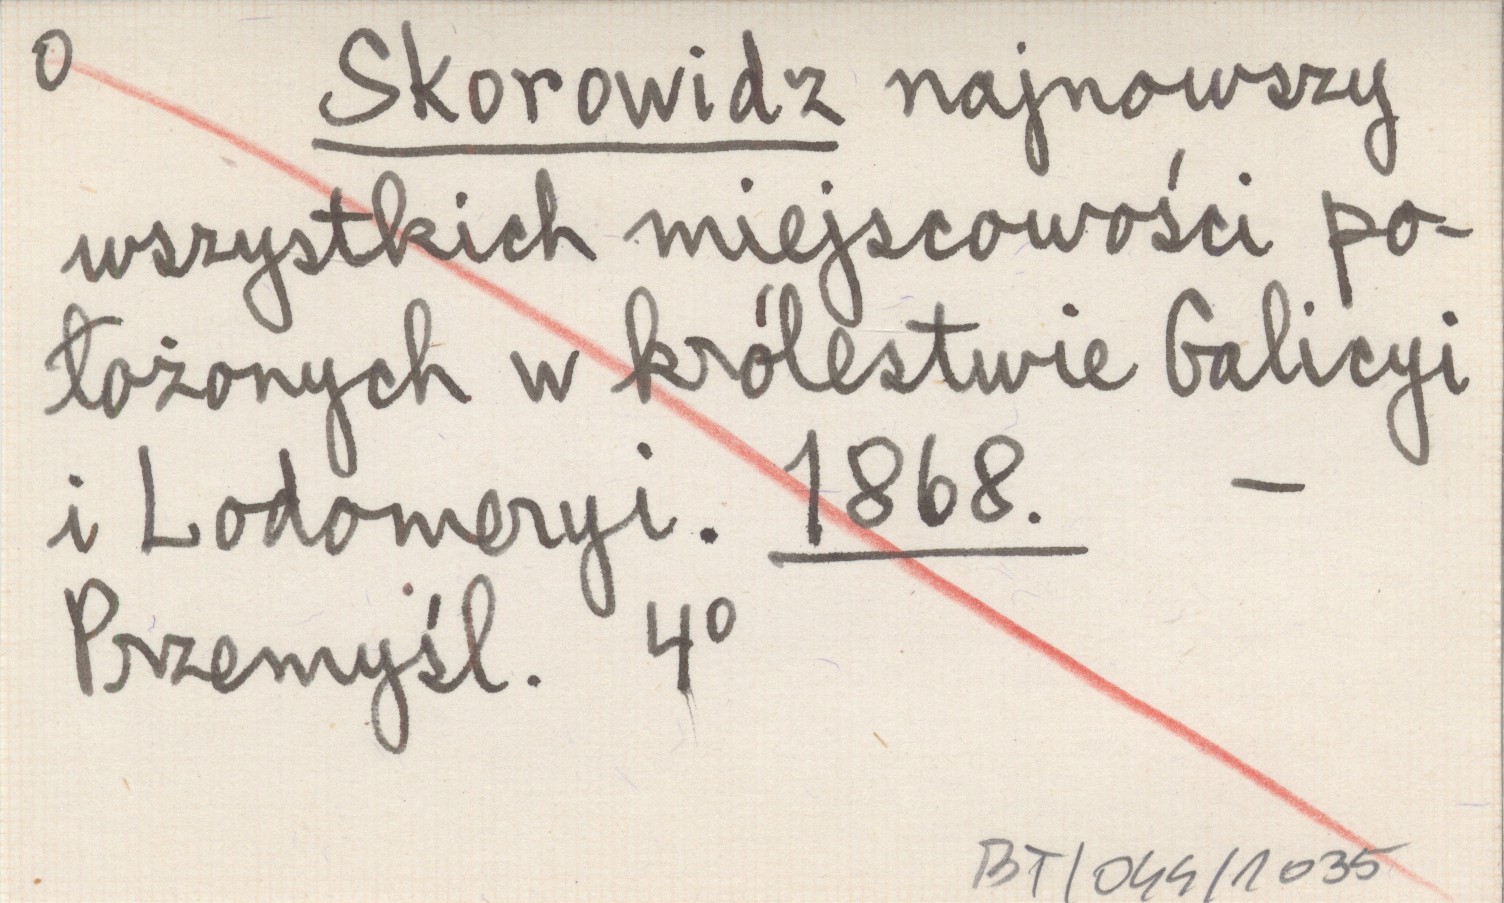 0 Skorowidz najnowszy
wszystkich miejscowości po-
łożonych w królestwie Galicyi
i Lodomeryi. 1868. —
Przemyśl. 4⁰
BT/044/1035